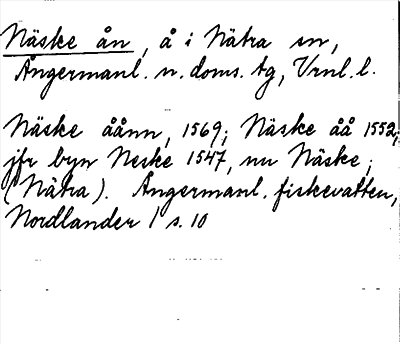 Näske ån, å i Nätra sn,
Ångermanl. n. doms. tg, Vrnl. l.
Näske åånn, 1569; Näske åå 1552;
jfr byn Neske 1547, nu Näske;
(Nätra). Ångermanl. fiskevatten,
Nordlander 1 s. 10